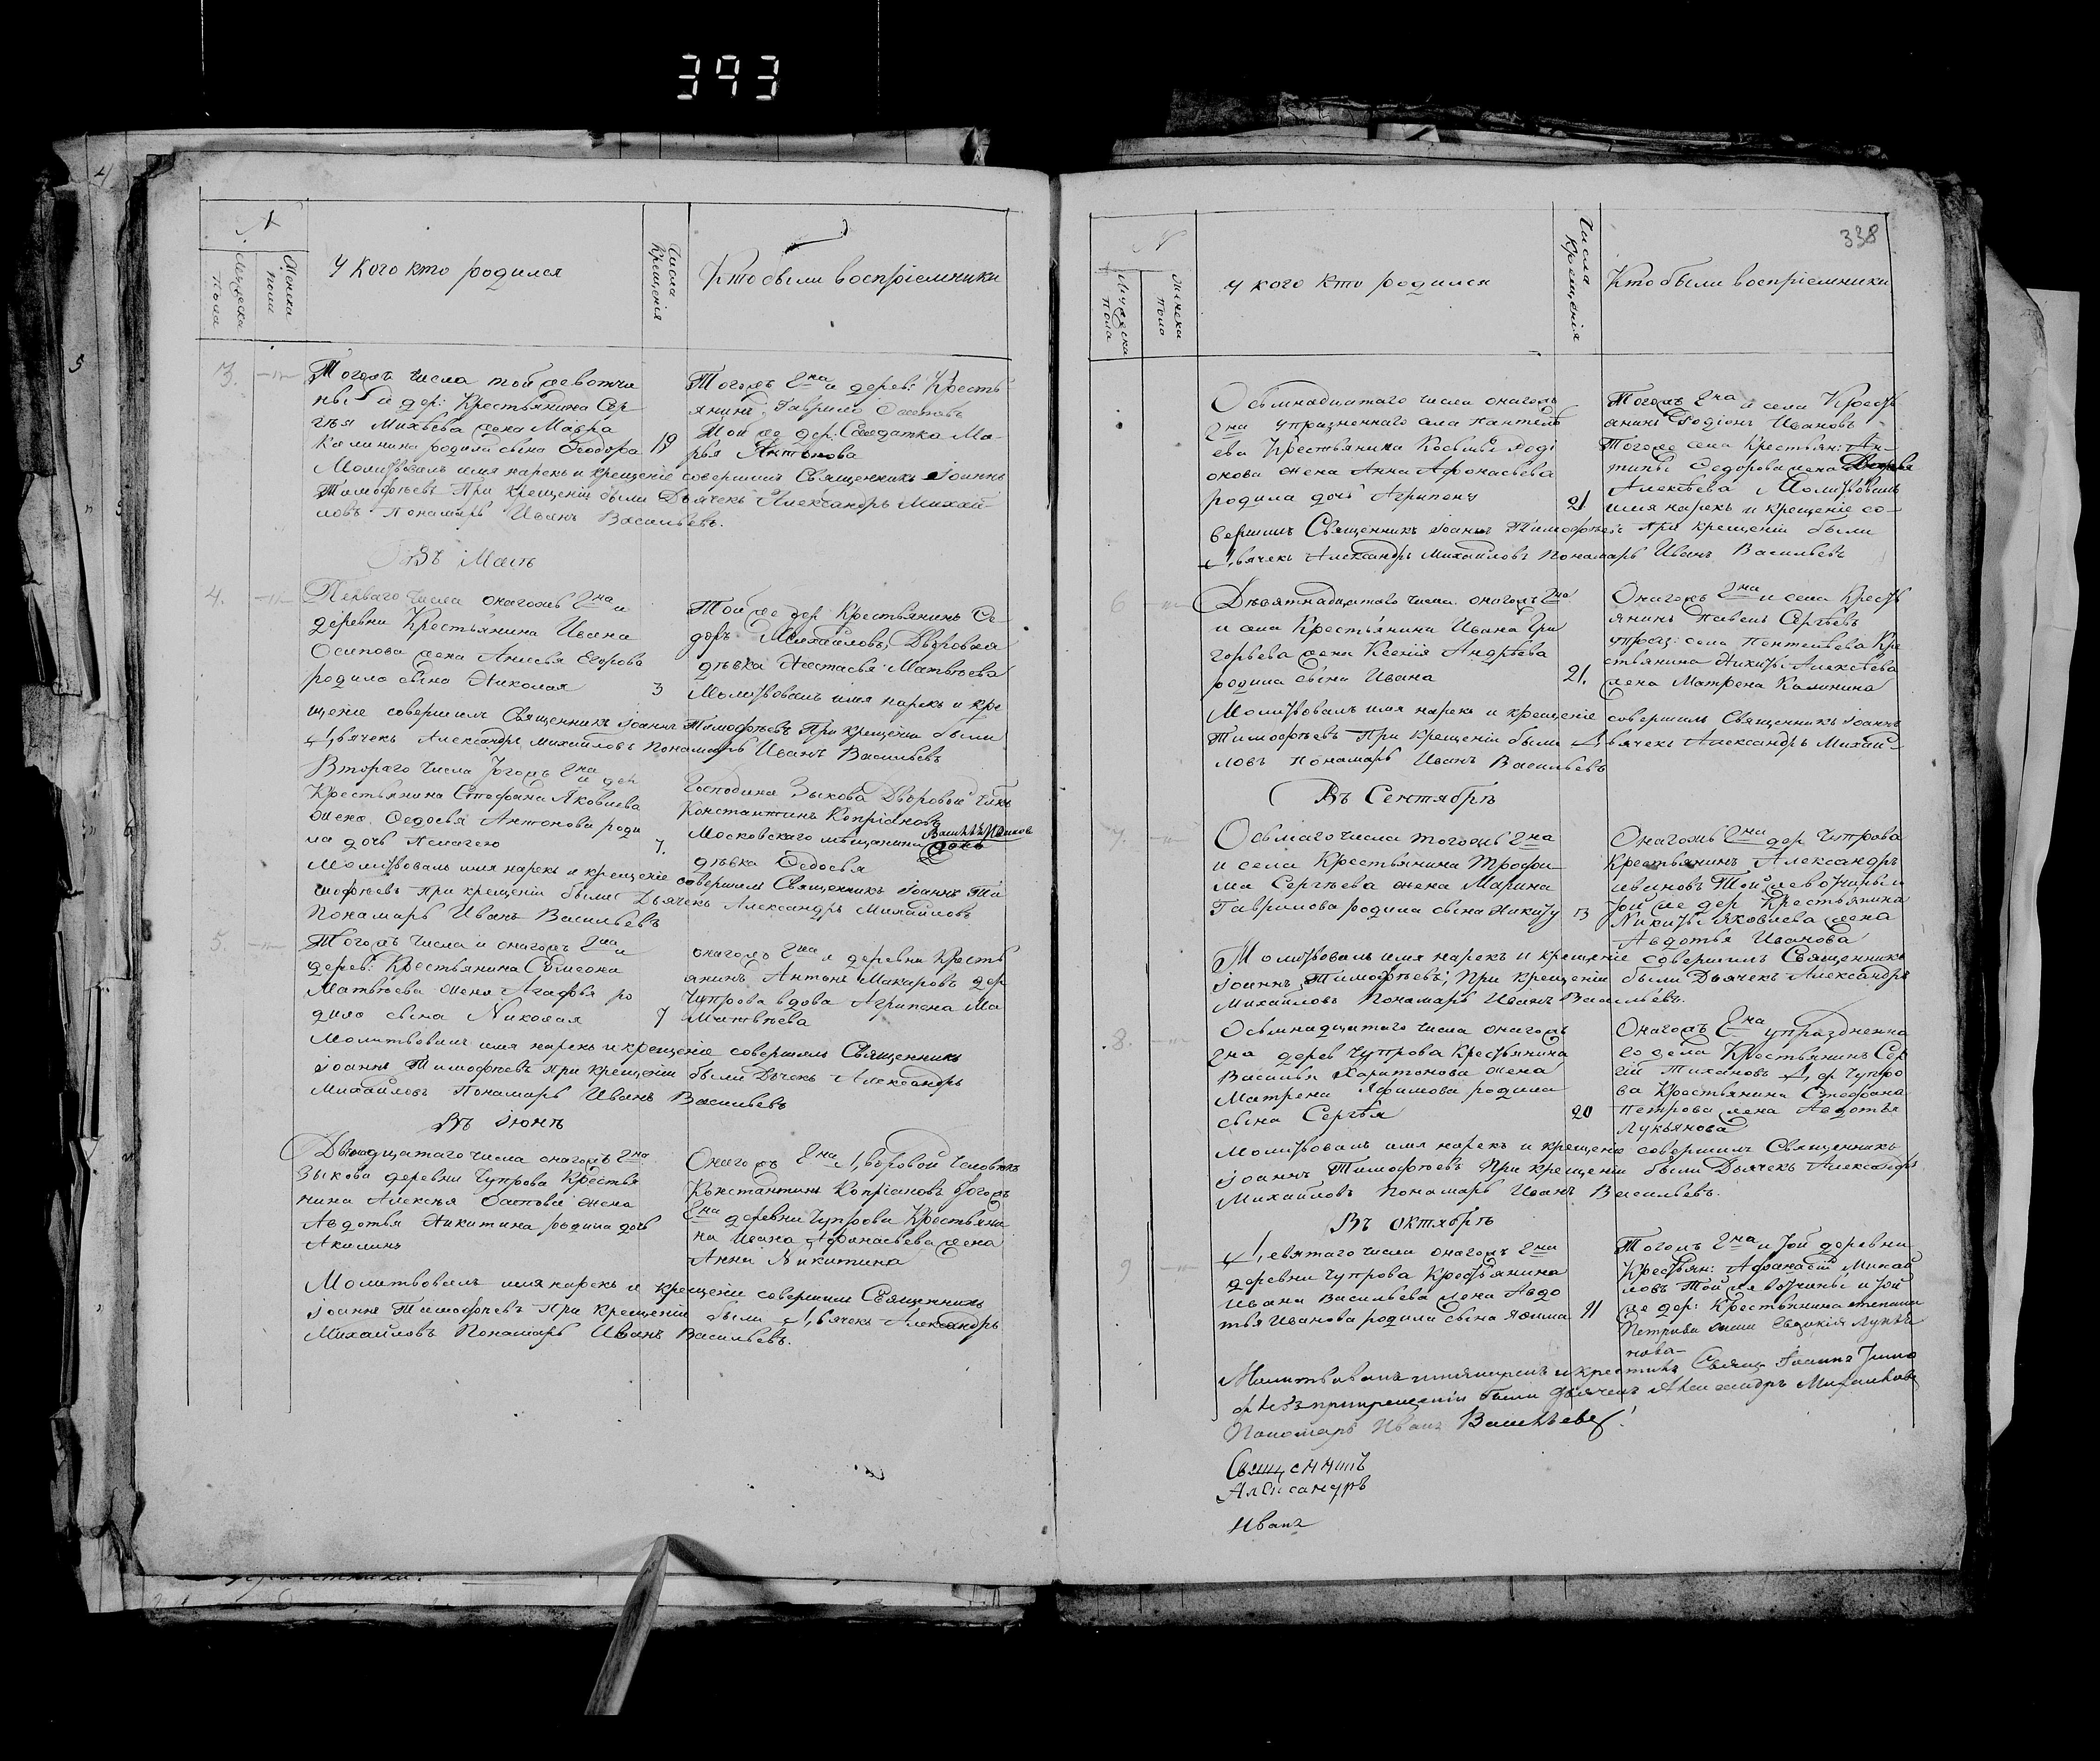 393
№
Мужеска пола
Женска пола
У кого кто родился
Числа Крещенія
Кто были воспріемники
3.
Тогожъ числа той же вотчи
ны и дер: Крестьянина Сер-
гѣя Михѣева жена Мавра
Калинина родила сына Ѳеодора
19
Тогожъ Гна и дерев: Кресть
янинъ Гаврило Осиповъ
Той же дер: Солдатка Ма-
рья Антонова
Молитвовалъ имя нарекъ и крещеніе совершилъ Священникъ Іоаннъ
Тимофѣевъ При крещеніи были Дьячекъ Александръ Михай-
ловъ Пономарь Иванъ Васильевъ.
Въ Маѣ
4.
Перваго числа онагожъ Гна и
деревни Крестьянина Ивана
Осипова жена Анисья Егорова
родила сына Николая
3
Той же дер Крестьянинъ Се-
доръ Михайловъ, Дворовая
дѣвка Настасья Матвѣева
Молитвовалъ имя нарекъ и кре
щеніе совершилъ Священникъ Іоаннъ Тимофѣевъ При крещеніи были
Дьячекъ Александръ Михайловъ Пономарь Иванъ Васильевъ
Втораго числа тогожъ Гна и дер
Крестьянина Стефана Яковлева
жена Ѳедосья Антонова роди
ла дочь Пелагею
7.
Господина Зыкова Дворовой члвкъ
Константинъ Копріановъ
Московскаго мѣщанина
дѣвка Ѳедосья
Молитвовалъ имя нарекъ и крещеніе совершилъ Священникъ Іоаннъ Ти
мофѣевъ при крещеніи были Дьячекъ Александръ Михайловъ
Пономарь Иванъ Васильевъ
5.
Тогожъ числа и онагожъ Гна и
дерев: Крестьянина Симеона
Матвѣева жена Агафья ро
дила сына Николая
7
онагожъ Гна и деревни Кресть
янинъ Антонъ Макаровъ дер
Чупрова вдова Агрипена Ма
Матвѣева
Молитвовалъ имя нарекъ и крещеніе совершилъ Священникъ
Іоаннъ Тимофѣевъ При крещеніи были Дьчекъ Александръ
Михайловъ Пономарь Иванъ Васильевъ
Въ Іюнѣ
Двенадцатаго числа онагожъ Гна
Зыкова деревни Чупрова Крестья
нина Алексѣя Осипова жена
Авдотья Никитина родила дочь
Акилину
Онагожъ Гна Дворовой человѣкъ
Константинъ Копріановъ тогожъ
Гна деревни Чупрова Крестьяни
на Ивана Афонасьева жена
Анна Никитина
Молитвовалъ имя нарекъ и крещеніе совершилъ Священникъ
Іоаннъ Тимофѣевъ При крещеніи были Дьячекъ Александръ
Михайловъ Пономарь Иванъ Васильевъ.
338
№
Мужеска пола
Женска пола
У кого кто родился
Числа Крещенія
Кто были воспріемники
Осьмнадцатаго числа онагожъ
Гна упразненнаго села Пантелѣ
ева Крестьянина Косьмы Роді
онова жена Анна Афонасьева
родила дочь Агрипену
21
Тогожъ Гна и села Кресть
янинъ Родіонъ Ивановъ
Тогоже села Крестьян: Ан-
типы Ѳедорова жена
Алексѣева Молитвовалъ
имя нарекъ и крещеніе со-
вершилъ Священникъ Іоаннъ Тимофѣевъ При крещеніи были
Дьячекъ Александръ Михайловъ Пономарь Иванъ Васильевъ
6
Девятнадцатаго числа онагожъ Гна
и села Крестьянина Ивана Гри
горьева жена Ксенія Андрѣева
родила сына Ивана
21.
Онагожъ Гна и села Кресть
янинъ Павелъ Сергѣевъ
упраз: села Пентелѣева Кре
стьянина Никиты Алексѣева
жена Матрена Калинина
Молитвовалъ имя нарекъ и крещеніе совершилъ Священникъ Іоаннъ
Тимофѣевъ При крещеніи были Дьячекъ Александръ Михай-
ловъ Пономарь Иванъ Васильевъ
Въ Сентябрѣ
7.
Осьмаго числа тогожъ Гна
и села Крестьянина Трофи
ма Сергѣева жена Марина
Гаврилова родила сына Никиту
13
Онагожъ Гна дер Чупрова
Крестьянинъ Александръ
Ивановъ Той же вотчины и
той же дер Крестьянина
Никиты Яковлева жена
Авдотья Иванова
Молитвовалъ имя нарекъ и крещеніе совершилъ Священникъ
Іоаннъ Тимофѣевъ, При крещеніи были Дьячекъ Александръ
Михайловъ Пономарь Иванъ Васильевъ.
8.
Осьмнадцатаго числа онагожъ
Гна дерев Чупрова Крестьянина
Василья Харитонова жена
Матрена Ефимова родила
сына Сергѣя
20
Онагожъ Гна упраздненна
го села Крестьянинъ Сер
гій Тихановъ Дер Чупро
ва Крестьянина Стефана
Петрова жена Авдотья
Лукьянова
Молитвовалъ имя нарекъ и крещеніе совершилъ Священникъ
Іоаннъ Тимофѣевъ При крещеніи были Дьячекъ Александръ
Михайловъ Пономарь Иванъ Васильевъ.
Въ Октябрѣ
9
Девятаго числа онагожъ Гна
деревни Чупрова Крестьянина
Ивана Васильева жена Авдо
тья Иванова родила сына Якима
11
Тогожъ Гна и той деревни
Крестьян: Афанасій Михай
ловъ Той же вотчины и той
же дер: Крестьянина степана
Петрова жена Евдокія Лукья
нова-
Молитвовалъ имя нарекъ и крестилъ Свящ Іоаннъ Тимо
фѣевъ при крещеніи были Дьячекъ Александръ Михайловъ
Пономарь Иванъ Васильевъ!
Священникъ
Александръ
Иванъ